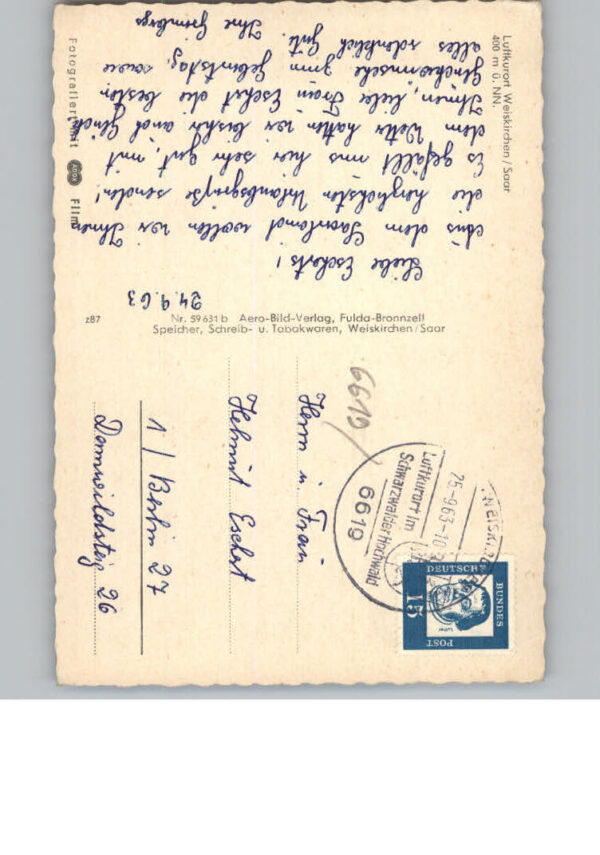 Luftkurort Weiskirchen/Saar
400 m ü. NN.
24.9.63
Liebe Escherts!
Aus dem Saarland wollen wir Ihnen
die herzlichsten Urlaubsgrüße senden!
Es gefällt uns hier sehr gut, mit
dem Wetter hatten wir bisher auch Glück.
Ihnen, liebe Frau Eschert die besten
Glückwünsche zum Geburtstag, sowie
alles erdenklich Gute.
Ihre
Fotografiert mit ADOX Film
z87
Nr. 59631b Aero-Bild-Verlag, Fulda-Bronnzell
Speicher, Schreib- u. Tabakwaren, Weiskirchen/Saar
6619
WEISKIRCHEN
25.-9.63-10
Luftkurort im
Schwarzwälder Hochwald
6619
DEUTSCHE
BUNDES
POST
15
Luther
Herrn u. Frau
Helmut Eschert
1 / Berlin 27
26